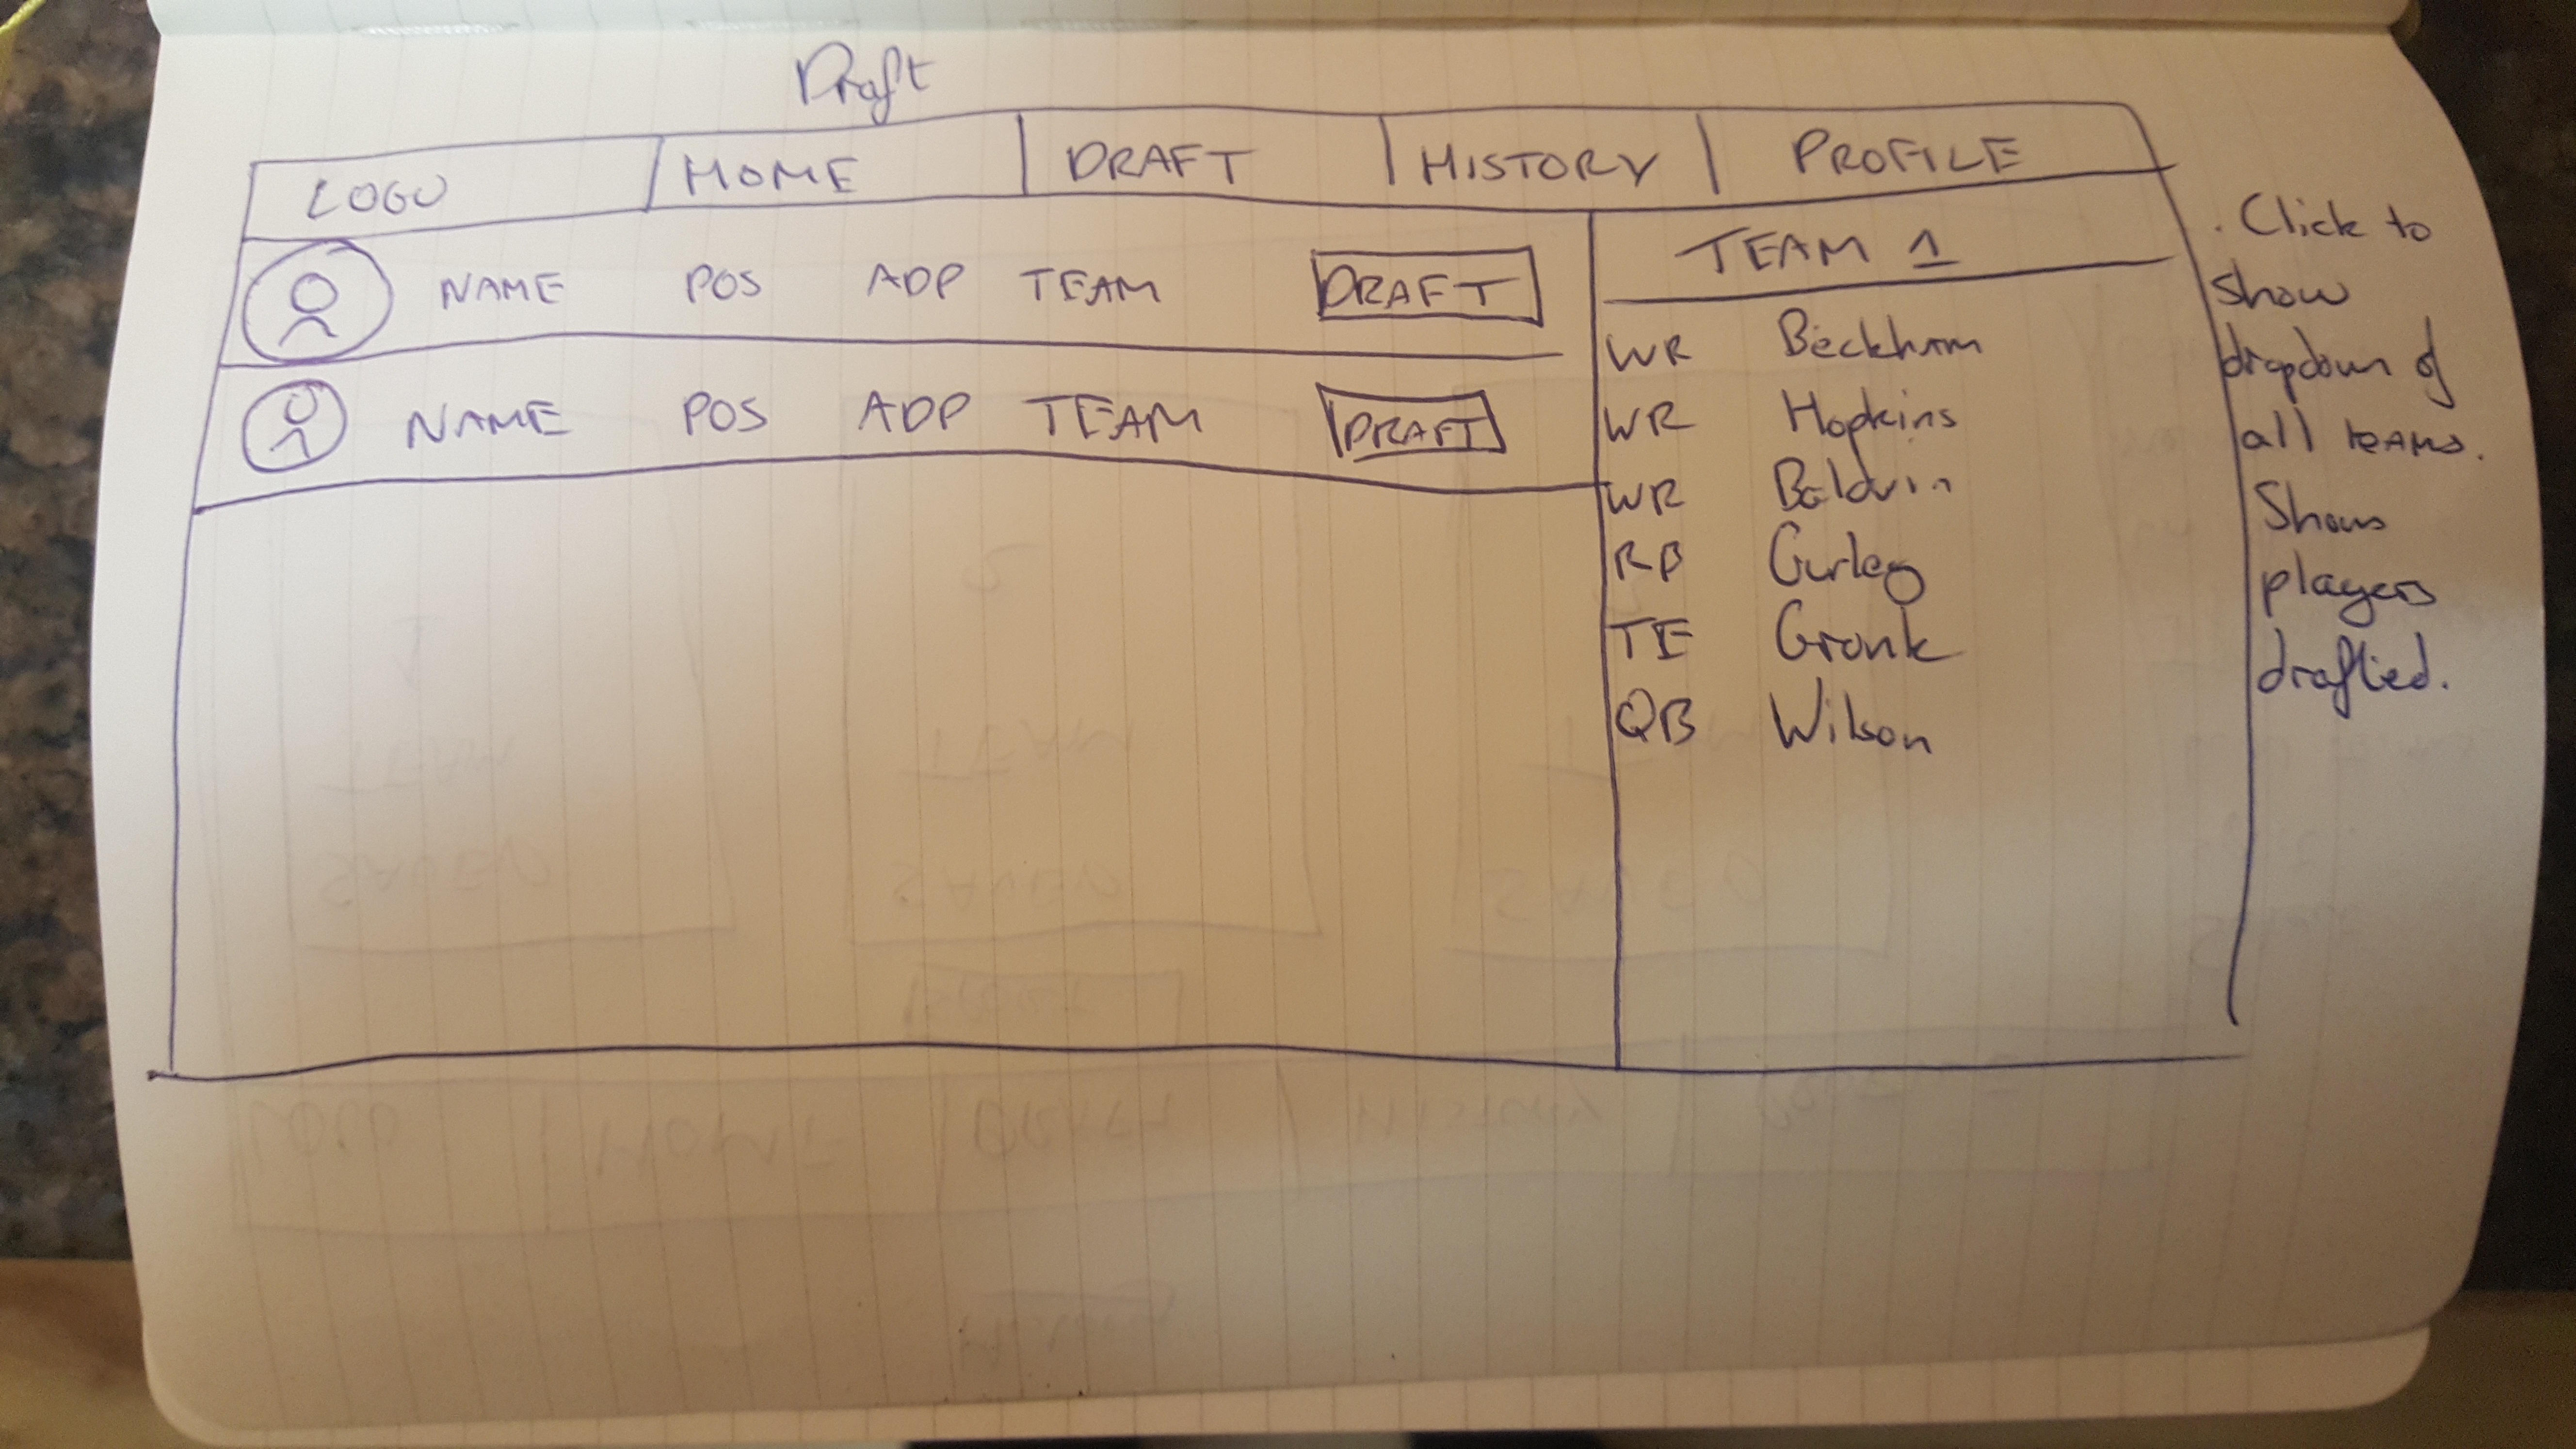 Draft
LOGO HOME DRAFT HISTORY PROFILE
NAME POS ADP TEAM DRAFT
NAME POS ADP TEAM DRAFT
TEAM 1
WR Beckham
WR Hopkins
WR Baldwin
RB Gurley
TE Gronk
QB Wilson
. Click to
show
dropdown of
all teams.
Shows
players
drafted.